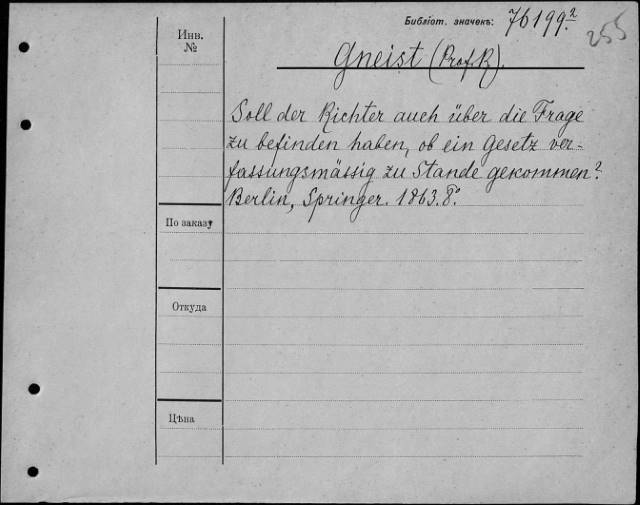 Библіот. значекъ: 76199.²
255
Инв.
№
Gneist (Prof. R).
Soll der Richter auch über die Frage
zu befinden haben, ob ein Gesetz ver-
fassungsmässig zu Stande gekommen?
Berlin, Springer. 1863. 8°.
По заказу
Откуда
Цѣна